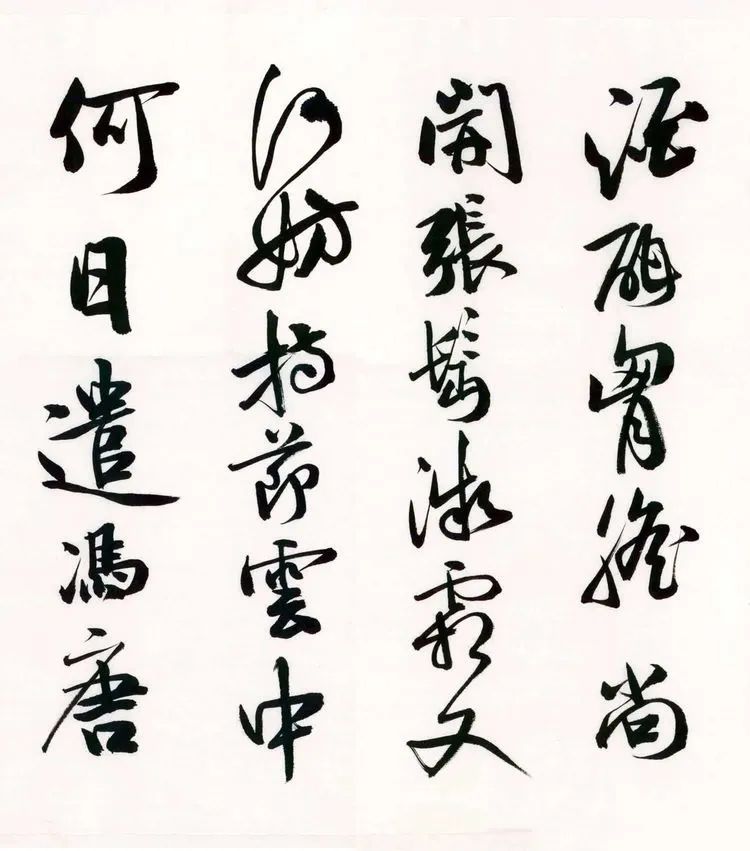 酒酣胸膽尚
開張鬢微霜又
何妨持節雲中
何日遣馮唐